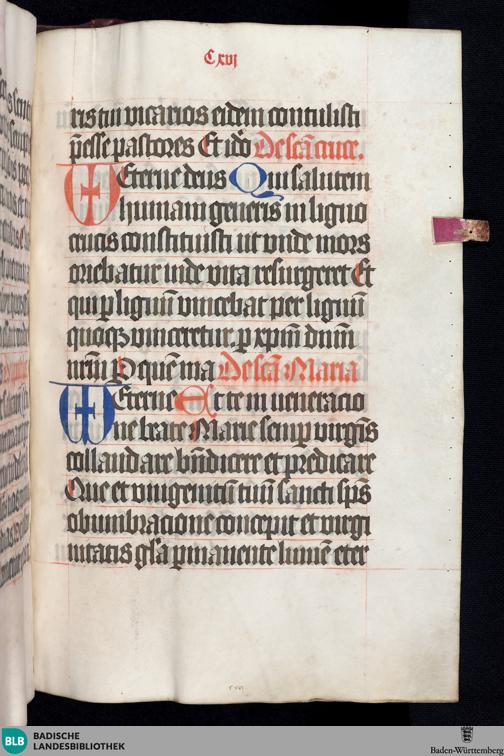 Cxvi
ris tui vicarios eidem contulisti
p̄esse pastores Et ido De sc̄a cruce.
VD Eterne deus Qui salutem
humani generis in ligno
crucis constituisti ut unde mors
oriebatur inde vita resurgeret Et
qui p lignū vincebat per lignū
quoqꝫ vinceretur. p xp̄m dn̄m
nr̄m P quē ma De sc̄a Maria
VD Eterne Et te in veneracio
ne beate Marie semp virgīs
collaudare bn̄dicere et p̄dicare
Que et vnigenitū tuū sancti sp̄s
obumbracione concepit et virgi
nitatis gl̄a p̄manente lumē eter
BLB BADISCHE
LANDESBIBLIOTHEK
Baden-Württemberg